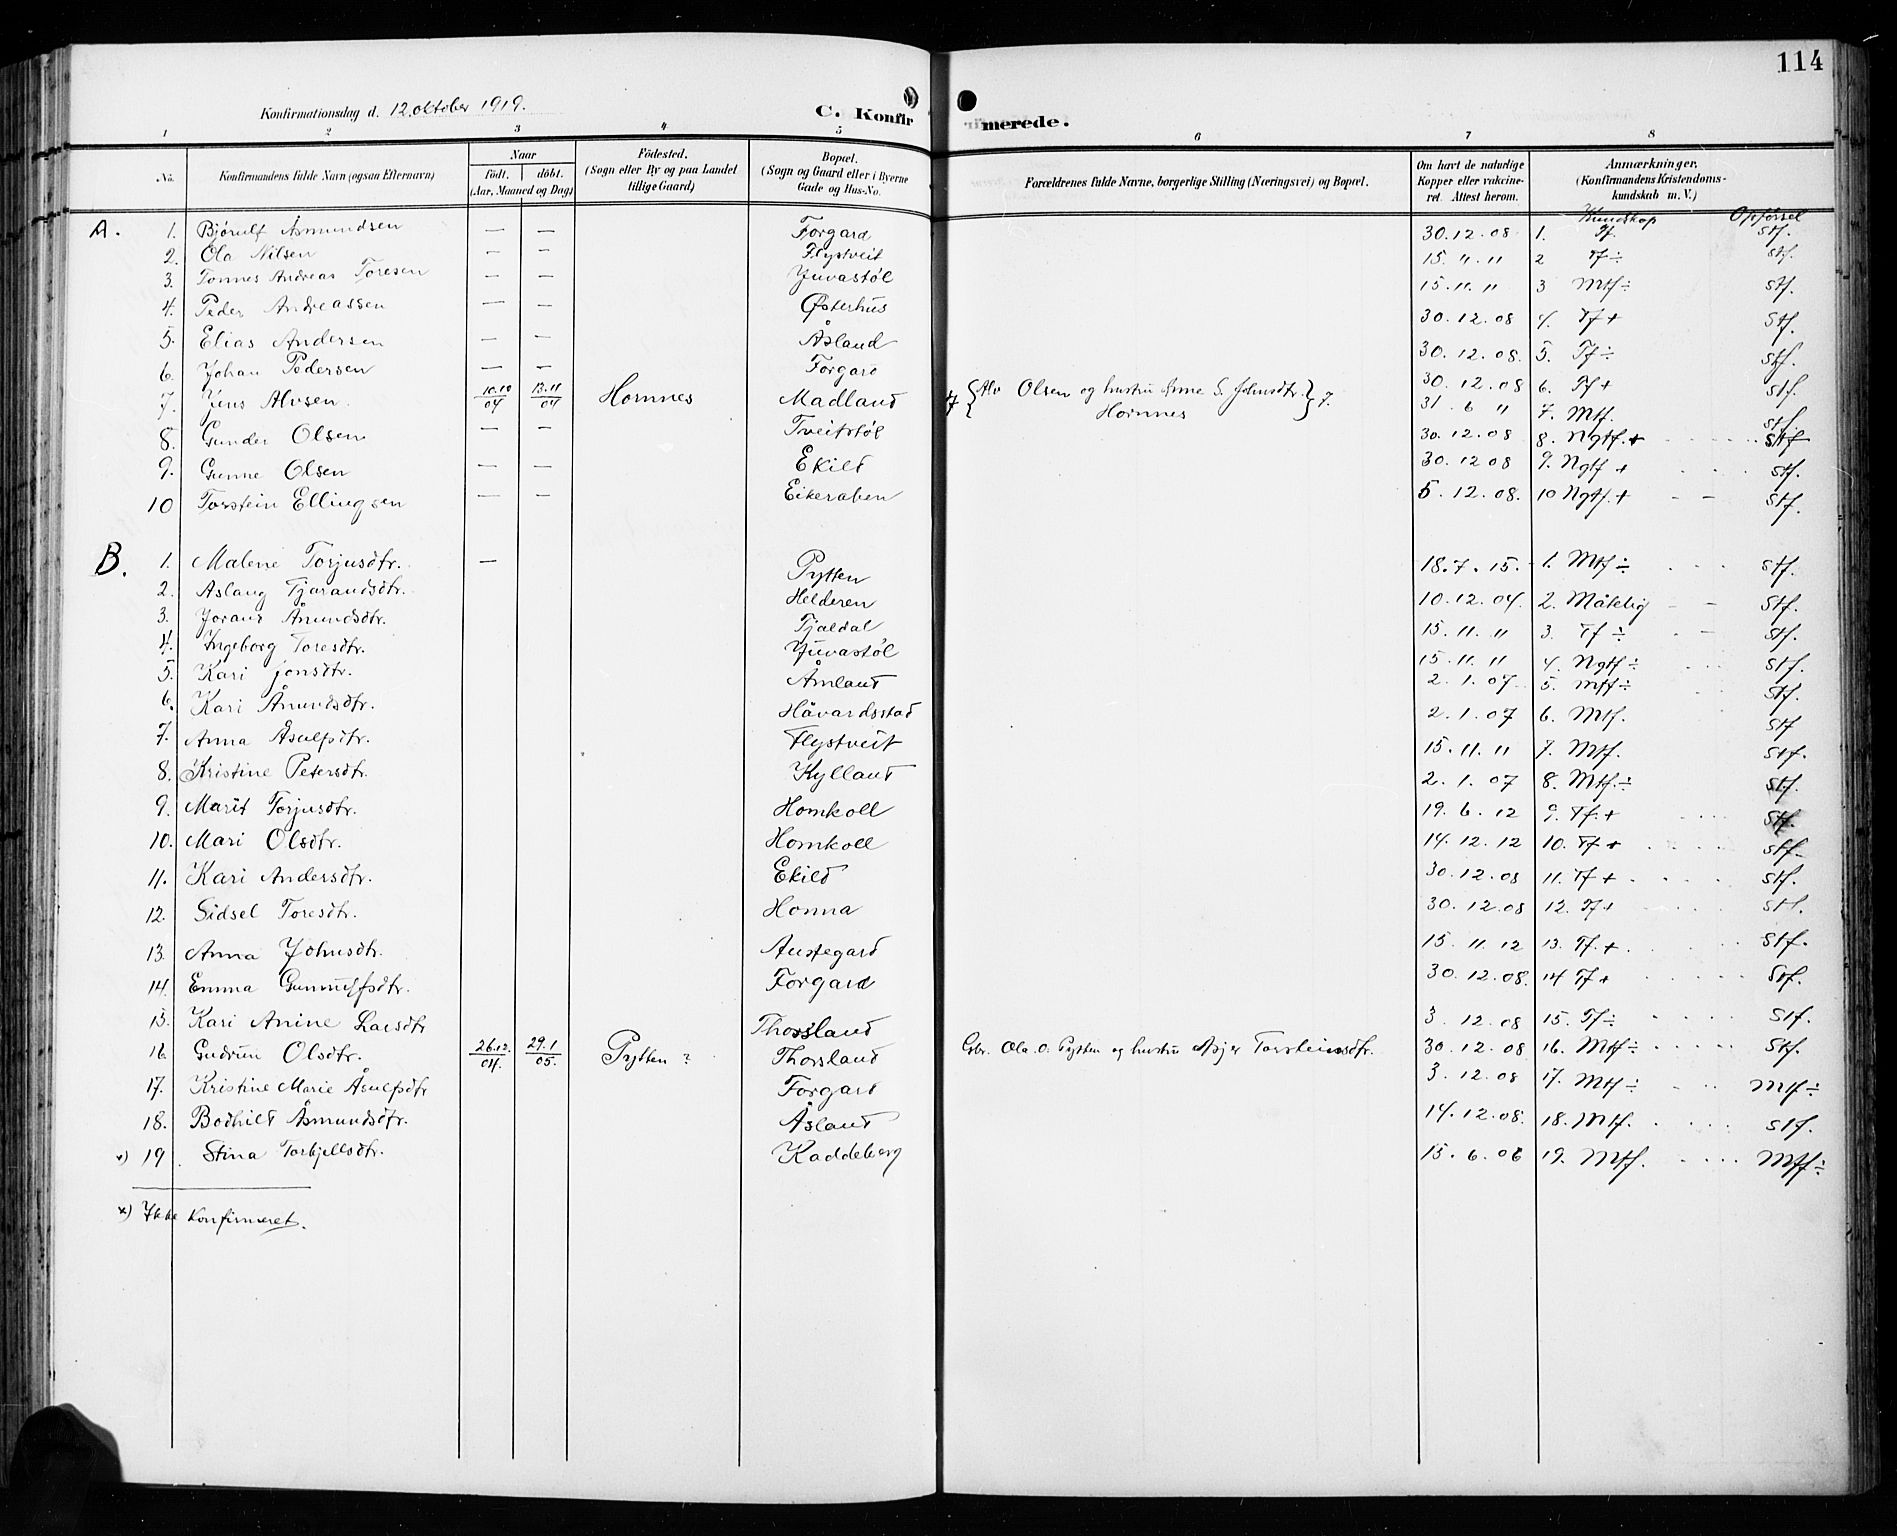 114
Konfirmationsdag d. 12. oktober 1919.
C. Konfirmerede.
1 2 3 4 5 6 7 8
No.
Konfirmandens fulde Navn (ogsaa Efternavn)
Naar
født. døbt.
(Aar, Maaned og Dag)
Födested.
(Sogn eller By og paa Landet tillige Gaard)
Bopæl.
(Sogn og Gaard eller i Byerne Gade og Hus-No.
Forældrenes fulde Navne, borgerlige Stilling (Næringsvei) og Bopæl.
Om havt de naturlige Kopper eller vakcineret. Attest herom.
Anmærkninger.
(Konfirmandens Kristendomskundskab m. V.)
Kundskap Opførsel
A. 1. Bjørulf Åsmundsen — — Forgard 30.12.08 1. Tf. Stf.
2. Ola Nilsen — — Flystveit 15. 11. 11 2 Tf ÷ Stf.
3. Tonnes Andreas Toresen — — Juvastøl 15. 11. 11 3 Mtf ÷ Stf.
4. Peder Andreassen — — Østerhus 30. 12. 08 4. Tf + Stf.
5. Elias Andersen — — Åsland 30. 12. 08. 5. Tf ÷ Stf.
6. Johan Pedersen — — Forgard 30. 12. 08 6. Tf + Stf.
7. Jens Alvsen. 10.10/04 13.11/04 Hornnes Madland 7 { Alv Olsen og hustru Anne S. Johnsdtr. Hornnes } 7. 31. 6 " 7. Mtf. Stf.
8. Gunder Olsen — — Tveitstøl 30. 12. 08 8. Ngtf. + Stf
9. Gunne Olsen — — Ekild 30. 12 08 9. Ngtf + Stf.
10 Torstein Ellingsen — — Eikeraben 5. 12. 08. 10 Ngtf. + Stf.
B. 1. Malene Torjusdtr. — Pytten 18. 7. 15. 1. Mtf ÷ Stf.
2. Aslaug Tjarandsdtr. Helderen 10. 12. 04. 2. Måtelig Stf.
3. Jorand Åmundsdtr. Tjaldal 15. 11. 11 3. Tf ÷ Stf.
4. Ingeborg Toresdtr. Juvastøl 15. 11. 11 4. Ngtf ÷ Stf.
5. Kari Jonsdtr. Åmland 2. 1. 07 5. Mtf ÷ Stf.
6. Kari Åmundsdtr. Håvardsstad 2. 1. 07 6. Mtf. Stf
7. Anna Åsulfsdtr. Flystveit 15. 11. 11 7. Mtf. Stf.
8. Kristine Petersdtr. Kylland 2. 1. 07 8. Mtf. ÷ Stf.
9. Marit Torjusdtr. Homkoll 19. 6. 12 9. Tf. + Stf.
10. Mari Olsdtr. Homkoll 14. 12. 12 10. Tf + Stf.
11. Kari Andersdtr. Ekild 30. 12. 08 11. Tf + Stf.
12. Sidsel Toresdtr. Honna 30. 12. 08 12. Tf + Stf.
13. Anna Johnsdtr. Austegard 15 11. 12 13. Tf. + Stf.
14. Emma Gunnulfsdtr. Forgard 30. 12. 08. 14 Tf + Stf.
15. Kari Anine Larsdtr Thorsland 3. 12. 08 15. Tf ÷ Stf.
16. Gudrun Olsdtr. 26.12./04. 29.1/05. Pytten ? Thorsland Gbr. Ola O. Pytten og hustru Asjer Torsteinsdtr. 30. 12. 08 16. Mtf ÷ Stf.
17. Kristine Marie Åsulfsdtr Forgard 3. 12. 08 17. Mtf ÷ Mtf ÷
18. Bodhild Åsmundsdtr. Åsland 14. 12. 08. 18. Mtf. Stf.
x) 19. Stina Torkjellsdtr. Kaddeberg 15. 6. 06 19. Mtf. Mtf ÷
x) Ikke konfirmeret.